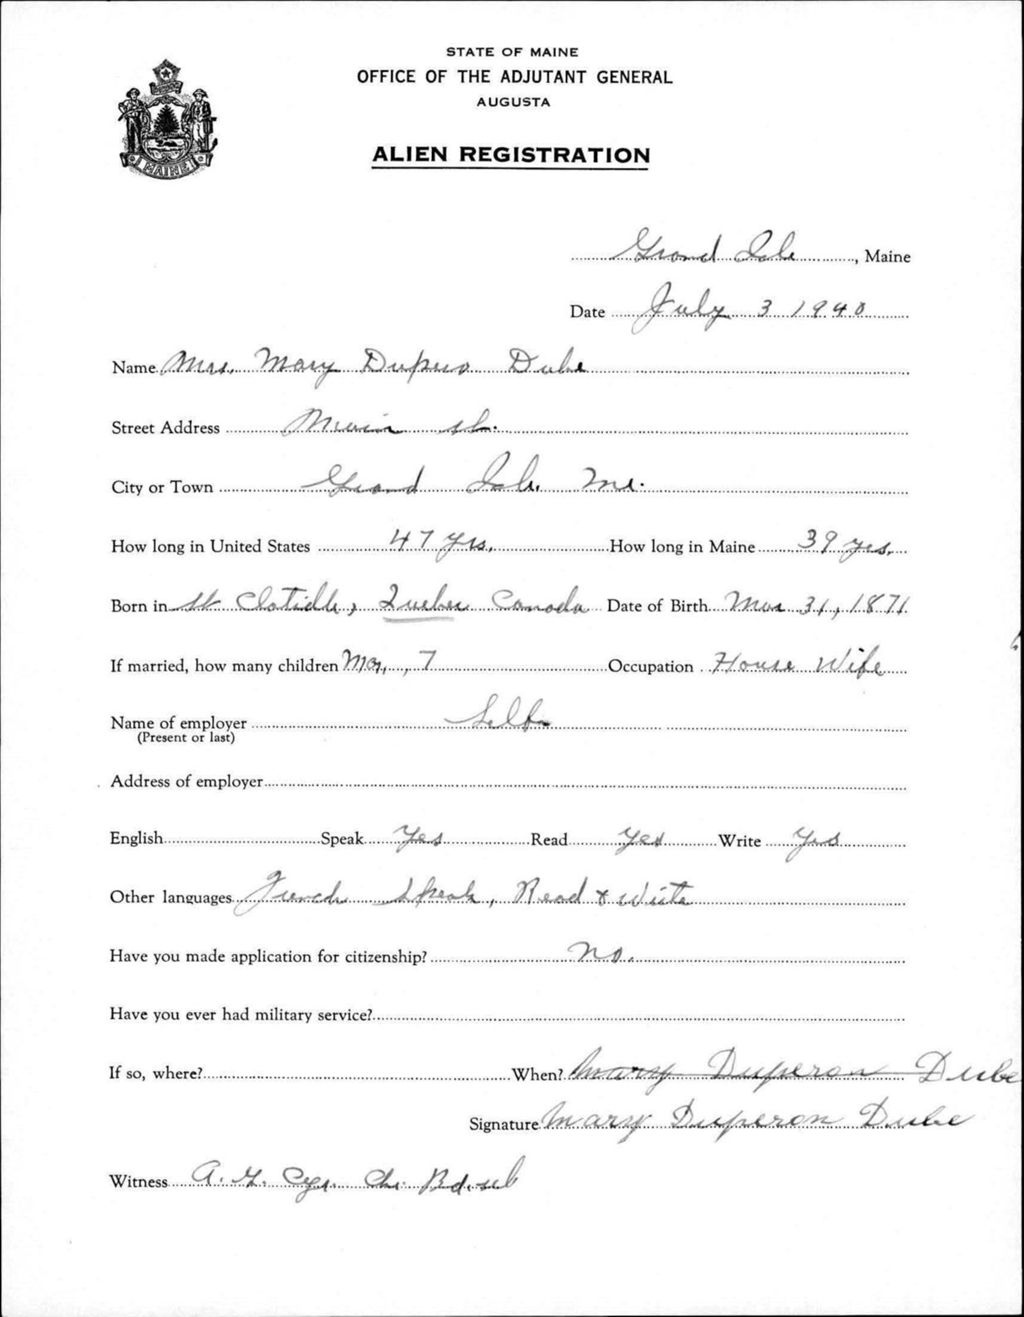 STATE OF MAINE
OFFICE OF THE ADJUTANT GENERAL
AUGUSTA
MAINE
ALIEN REGISTRATION
Grand Isle, Maine
Date July 3 1940
Name Mrs. Mary Dube
Street Address Main st.
City or Town Grand Isle. Me.
How long in United States 47 yrs. How long in Maine 39 yrs.
Born in St Clotilde, Quebec Canada Date of Birth Mar 31, 1871
If married, how many children 7 Occupation House Wife
Name of employer Self
(Present or last)
Address of employer
English Speak Yes Read Yes Write Yes
Other languages French Speak, Read & Write
Have you made application for citizenship? No.
Have you ever had military service?
If so, where? When? Mary Duperon Dube
Signature Mary Duperon Dube
Witness A.